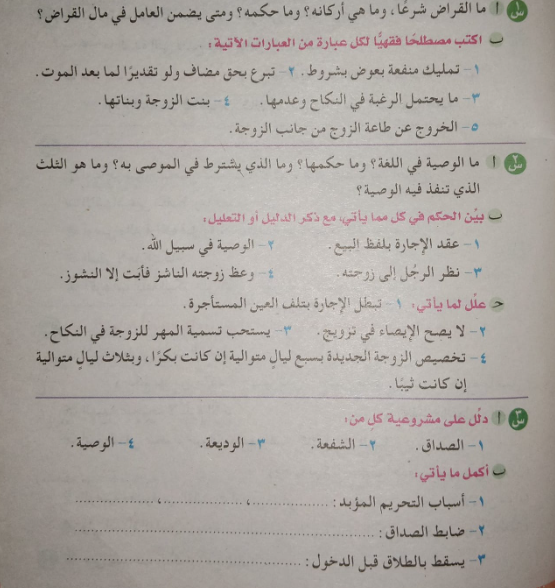 س١ أ ما القراض شرعًا، وما هي أركانه؟ وما حكمه؟ ومتى يضمن العامل في مال القراض؟
ب اكتب مصطلحًا فقهيًّا لكل عبارة من العبارات الآتية:
١- تمليك منفعة بعوض بشروط. ٢- تبرع بحق مضاف ولو تقديرًا لما بعد الموت.
٣- ما يحتمل الرغبة في النكاح وعدمها. ٤- بنت الزوجة وبناتها.
٥- الخروج عن طاعة الزوج من جانب الزوجة.
س٢ أ ما الوصية في اللغة؟ وما حكمها؟ وما الذي يشترط في الموصى به؟ وما هو الثلث
الذي تنفذ فيه الوصية؟
ب بيّن الحكم في كل مما يأتي، مع ذكر الدليل أو التعليل:
١- عقد الإجارة بلفظ البيع. ٢- الوصية في سبيل الله.
٣- نظر الرجُل إلى زوجته. ٤- وعظ زوجته الناشز فأبَت إلا النشوز.
جـ علّل لما يأتي: ١- تبطُل الإجارة بتلف العين المستأجرة.
٢- لا يصح الإيصاء في تزويج. ٣- يستحب تسمية المهر للزوجة في النكاح.
٤- تخصيص الزوجة الجديدة بسبع ليالٍ متوالية إن كانت بكرًا، وبثلاث ليالٍ متوالية
إن كانت ثيبًا.
س٣ أ دلّل على مشروعية كلٍ من:
١- الصداق. ٢- الشفعة. ٣- الوديعة. ٤- الوصية.
ب أكمل ما يأتي:
١- أسباب التحريم المؤبد: ....................، ....................، ....................
٢- ضابط الصداق: ............................................................
٣- يسقط بالطلاق قبل الدخول: ............................................................